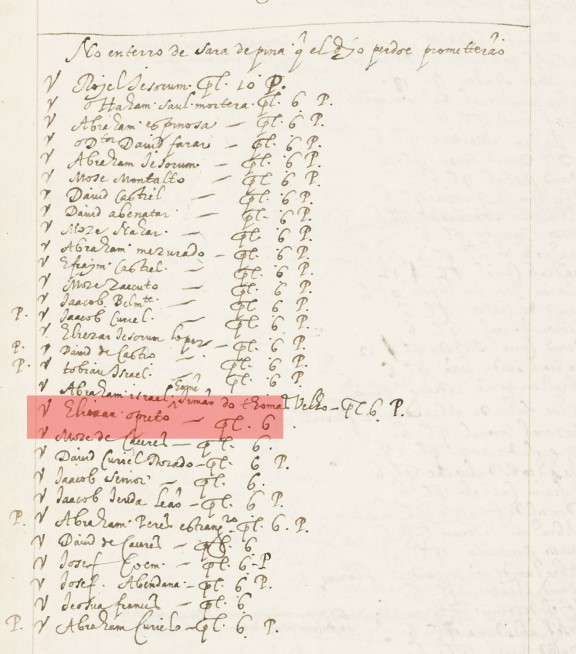 No enterro de Sara de pina q̃ el Dio perdoe prometterão
V Rojel Jesurum. pl. 10 P.
V oHaham. Saul. mortera. pl. 6 P.
V Abraham. espinosa — pl. 6 P.
V o Dtor David farar — pl. 6 P.
V Abraham Jesurum — pl. 6 P.
V Mose Montalto — pl. 6 P.
V David Castiel — pl. 6 P.
V David abenatar — pl. 6 P.
V Moze — pl. 6 P.
V Abraham. mezurado — pl. 6 P.
V Efraim. Castiel — pl. 6 P.
V Moze zaecuto — pl. 6 P.
V Jaacob Belmte — pl. 6 P.
P. V Jaacob Curiel — pl. 6 P.
V Eliezer Jesurum lopez — pl. 6 P.
P. V David de Castro — pl. 6 P.
P. V tobiau Israel — pl. 6 P.
V Abraham israel Simão do thomas Velho — pl. 6 P.
V Eliezar. opreto — pl. 6
V Moze de Caceres — pl. 6
V David Curiel Dorado — pl. 6 P.
V Jaacob Senior — pl. 6.
V Jaacob Jeuda Leaõ — pl. 6 P.
P. V Abraham. Peres estrangro — pl. 6. P.
V David de Caceres — pl. 6
V Josef Coem — pl. 6 P
V Josef. Abendana — pl. 6 P.
V Jeosua frances — pl. 6
P. V Abraham Curiel — pl. 6 P.